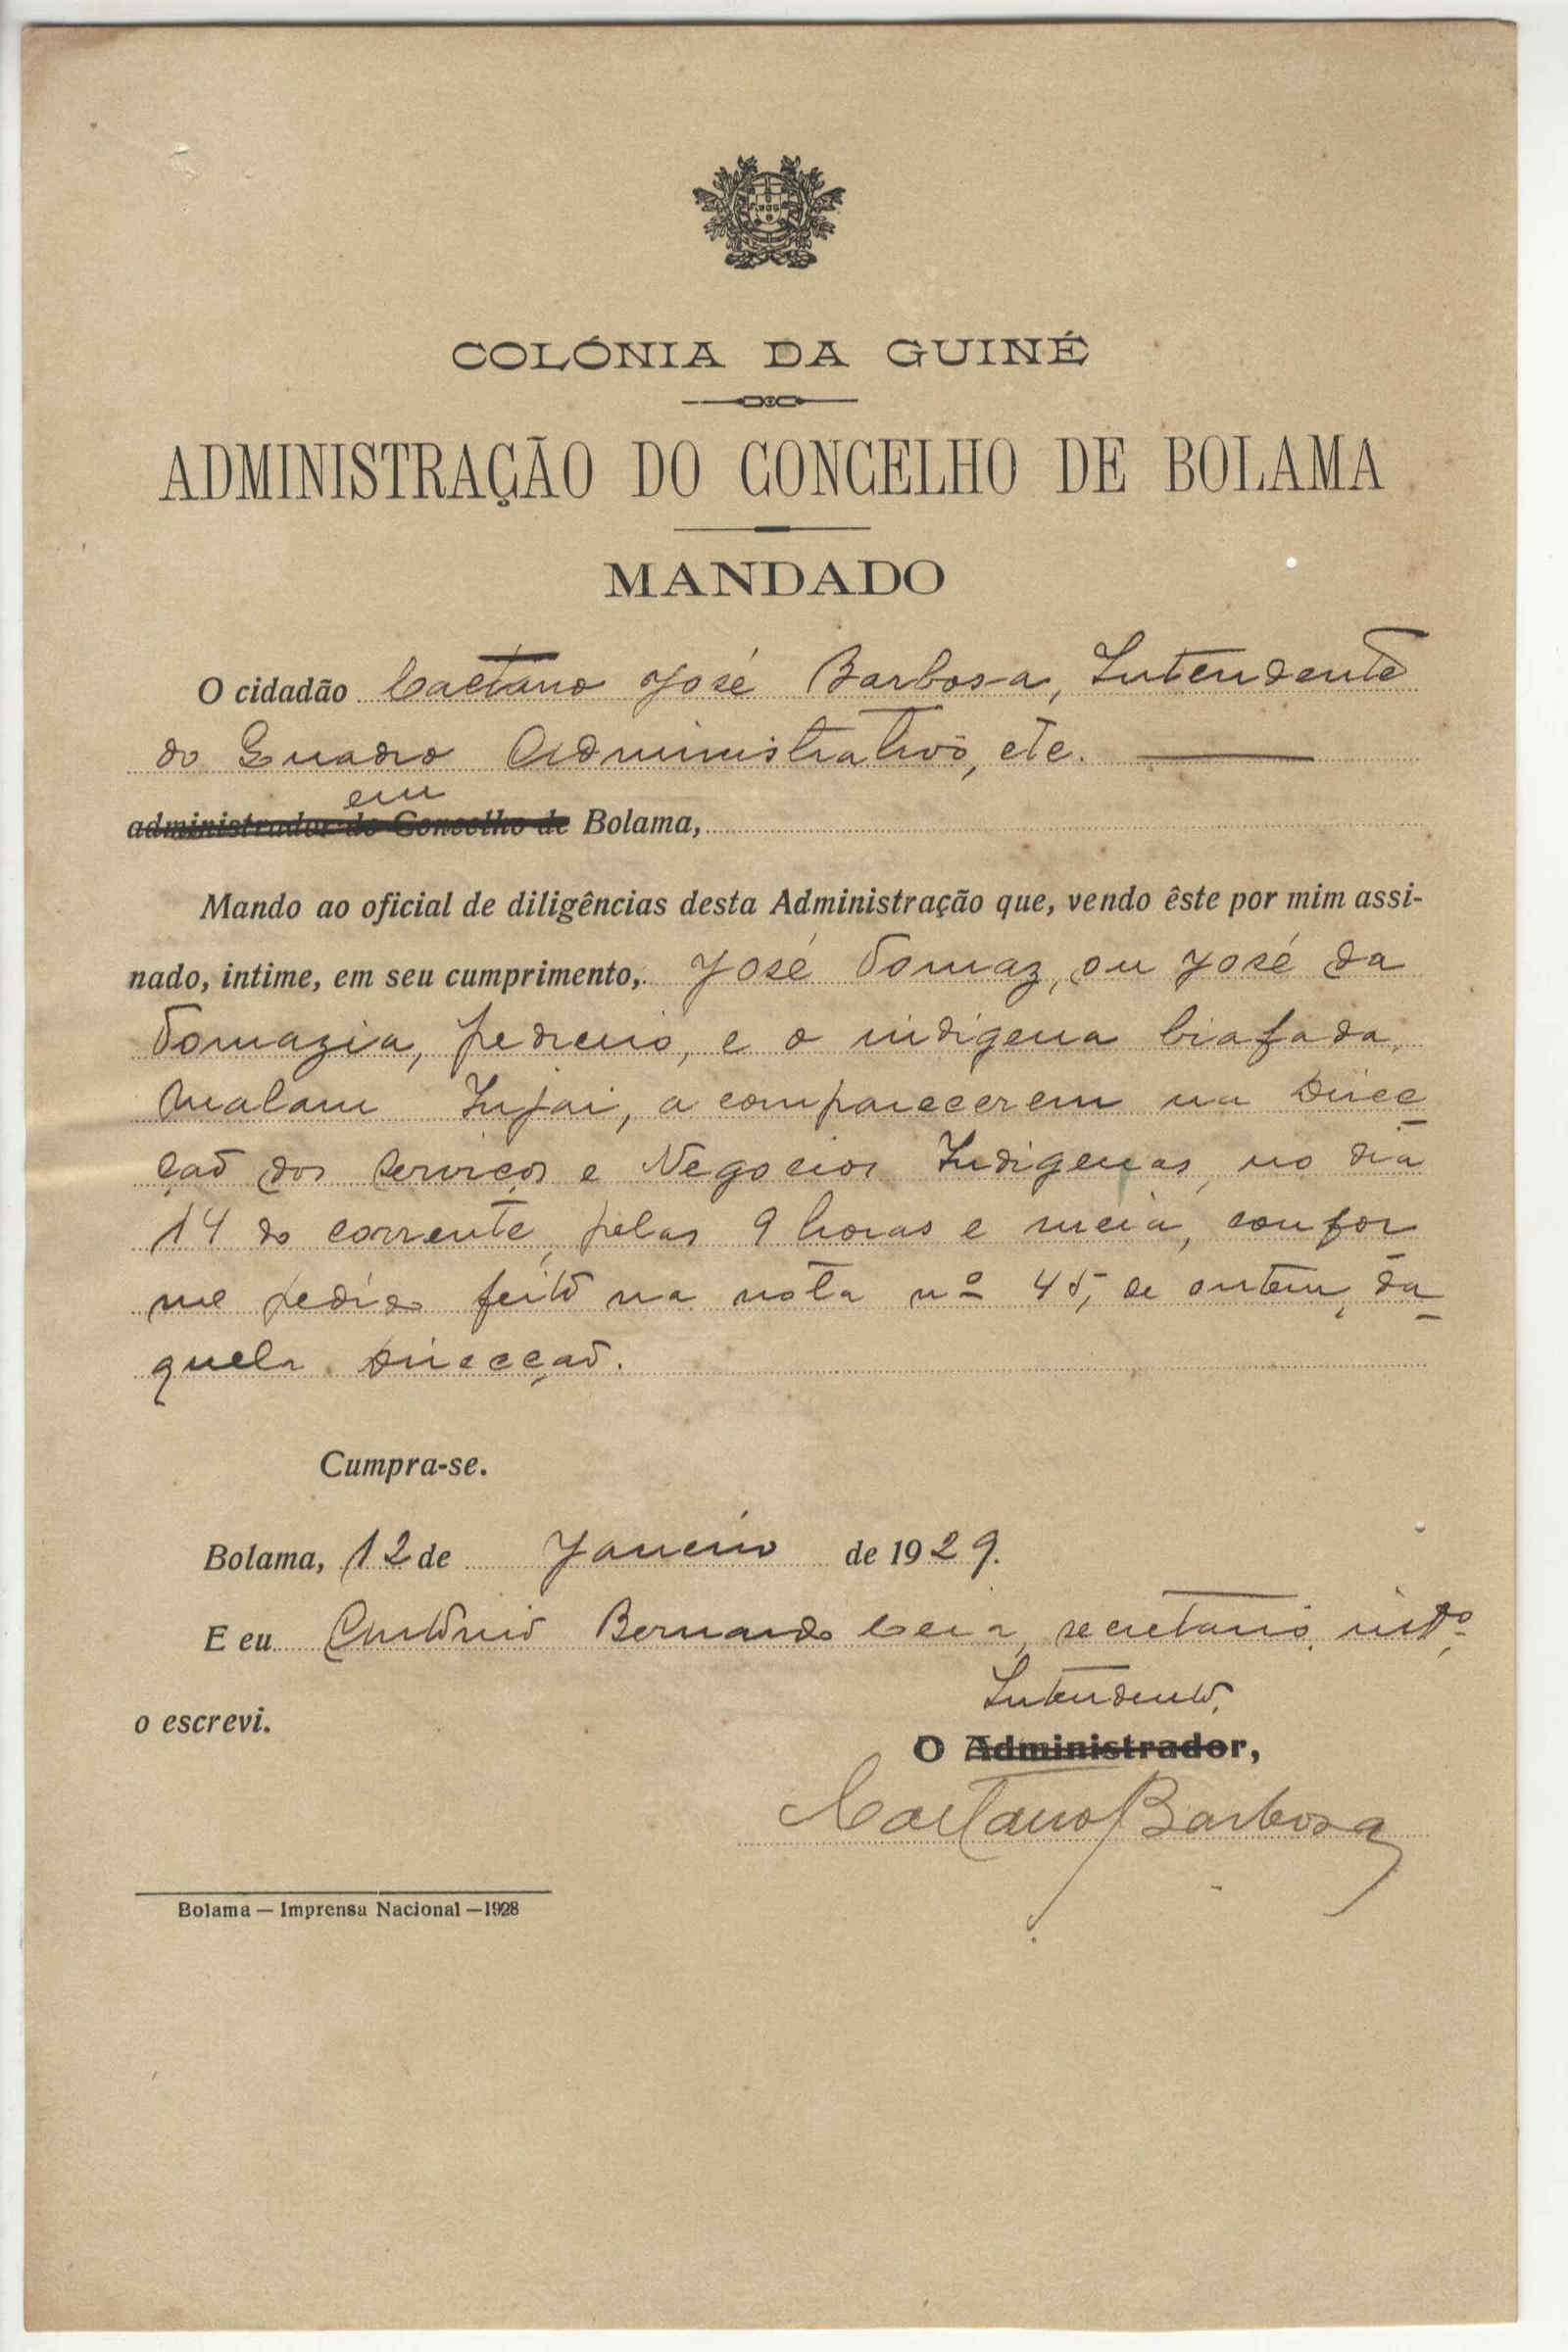 COLÓNIA DA GUINÉ
ADMINISTRAÇÃO DO CONCELHO DE BOLAMA
MANDADO
O cidadão Caetano José Barbosa, Intendente
do Quadro Administrativo, etc.
em
administrador do Concelho de Bolama,
Mando ao oficial de diligências desta Administração que, vendo êste por mim assi-
nado, intime, em seu cumprimento, José Tomaz, ou José da
Tomazia, pedreiro, e o indigena biafada,
Malam Injai, a comparecerem na Direc
ção dos Serviços e Negocios Indigenas, no dia
14 do corrente, pelas 9 horas e meia, confor
me pedido feito na nota nº 45, de ontem, da
quela Direcção.
Cumpra-se.
Bolama, 12 de Janeiro de 1929.
E eu António Bernardo secretario
Intendente,
o escrevi.
O Administrador,
Caetano Barbosa
Bolama — Imprensa Nacional — 1928